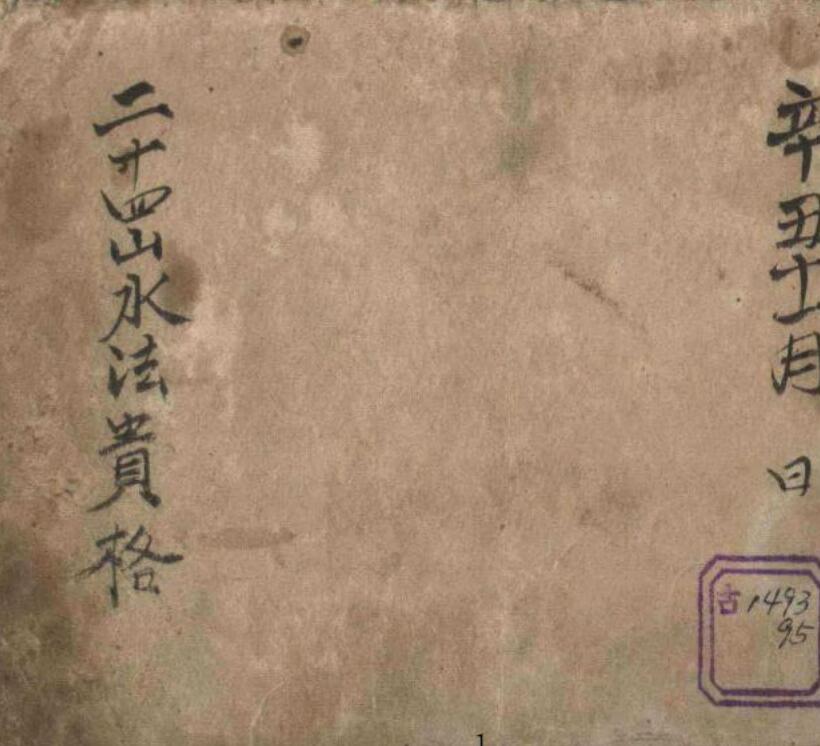 辛丑十一月 日
二十四山水法貴格
古 1493
95
1